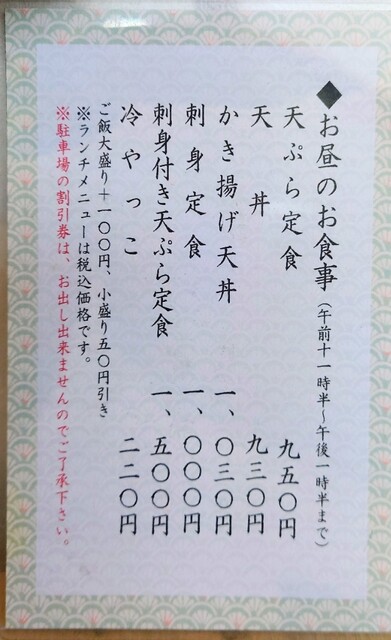 ◆お昼のお食事（午前十一時半～午後一時半まで）
天ぷら定食 九五〇円
天丼 九三〇円
かき揚げ天丼 一、〇三〇円
刺身定食 一、〇〇〇円
刺身付き天ぷら定食 一、五〇〇円
冷やっこ 二二〇円
ご飯大盛り＋一〇〇円、小盛り五〇円引き
※ランチメニューは税込価格です。
※駐車場の割引券は、お出し出来ませんのでご了承下さい。